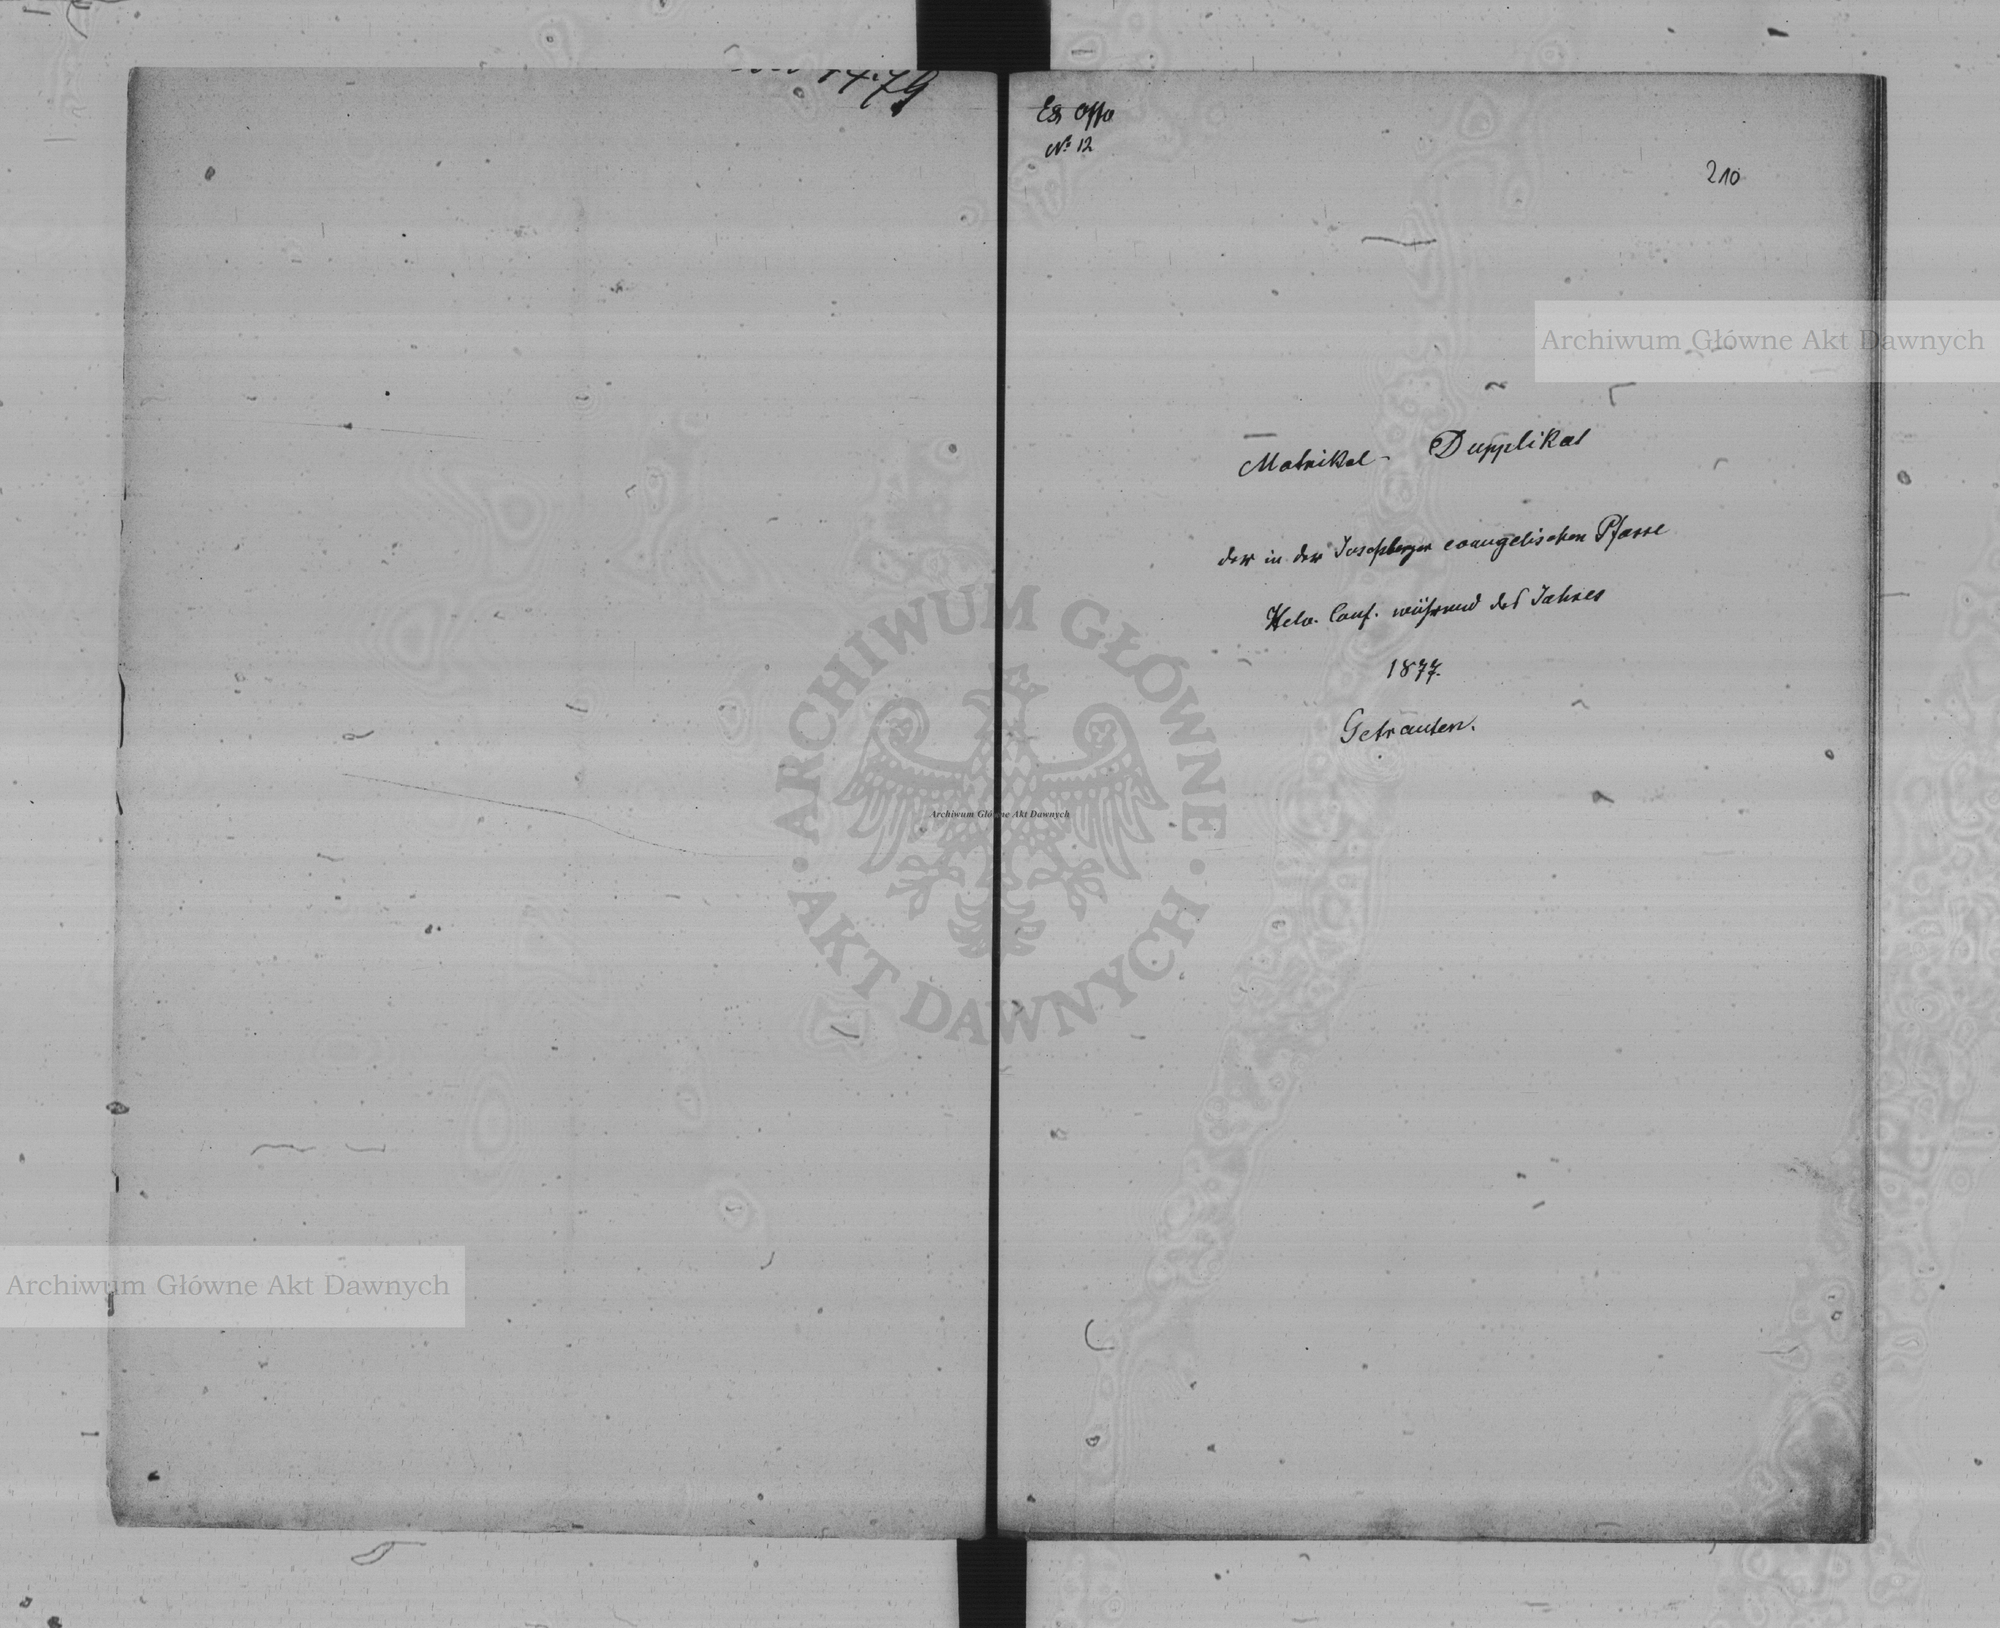 1479
Ex offo
No 12
210
Archiwum Główne Akt Dawnych
Matrikel- Dupplikat
der in der Josefsberger evangelischen Pfarre
Helv. Conf. während des Jahres
1877.
Getrauten.
ARCHIWUM GŁÓWNE · AKT DAWNYCH ·
Archiwum Główne Akt Dawnych
Archiwum Główne Akt Dawnych